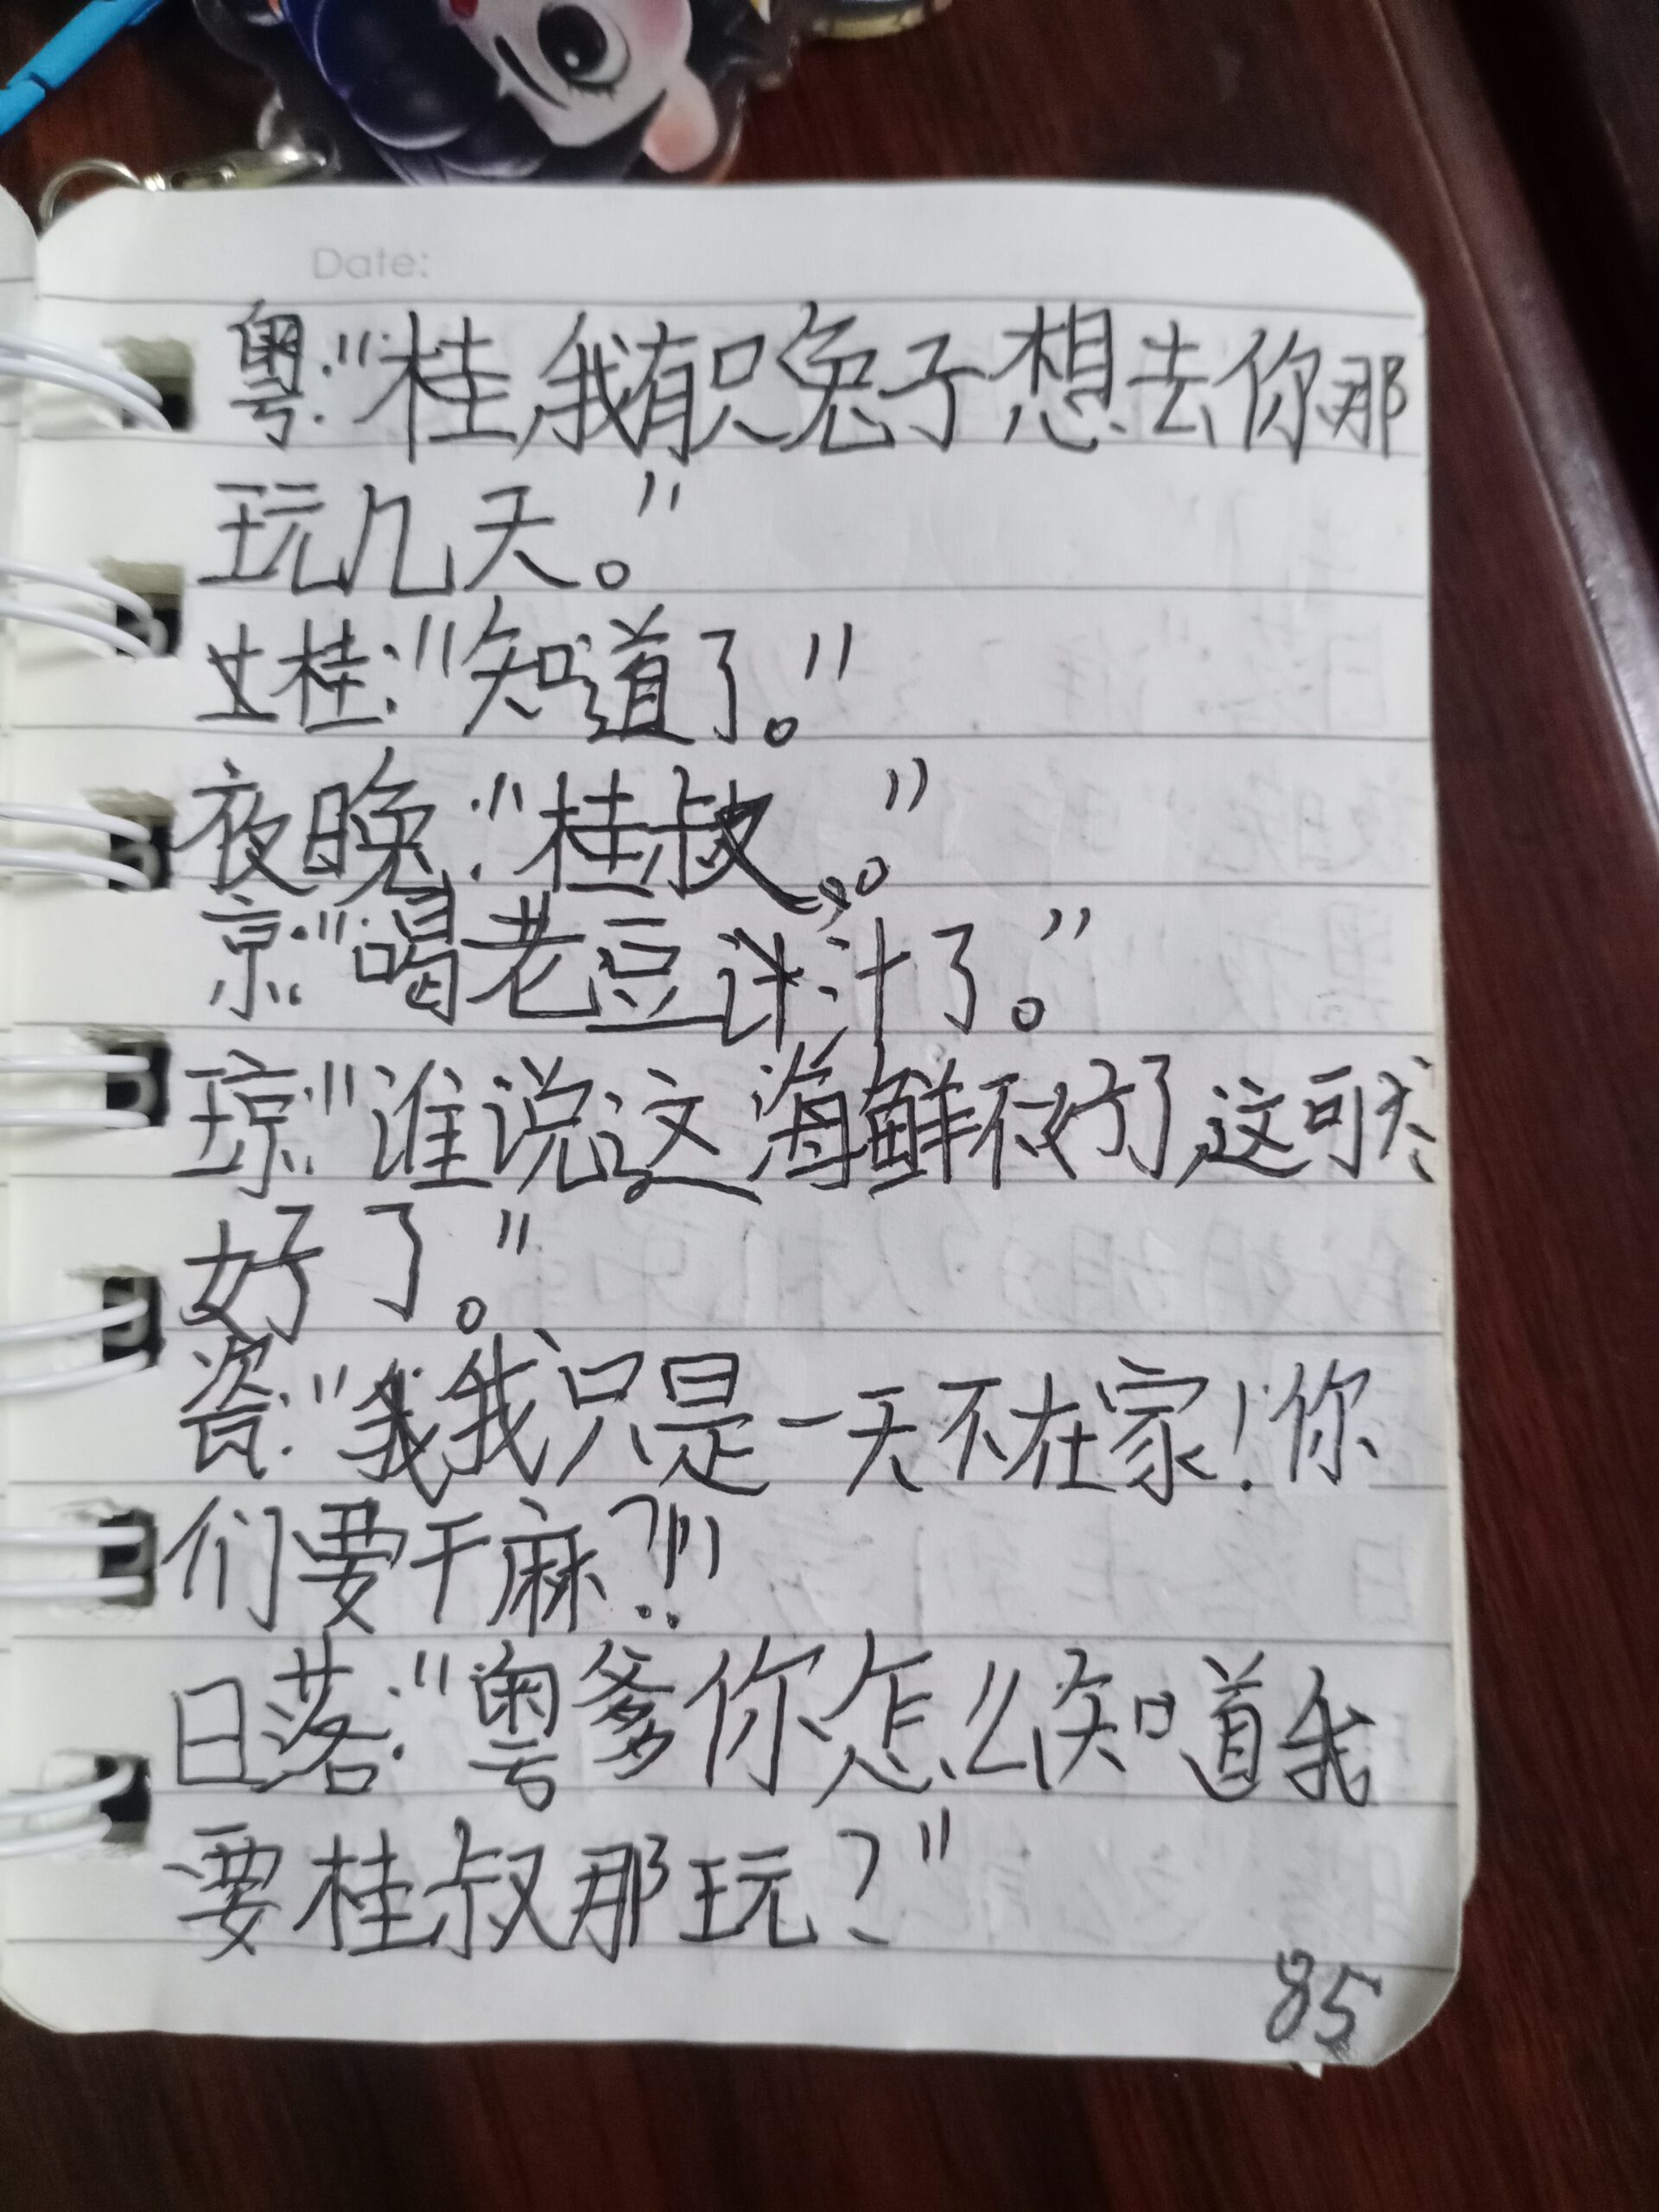 Date:
粤:"桂,我有只兔子想去你那
玩几天。"
桂:"知道了。"
夜晚:"桂叔。"
京:"喝老豆汁了。"
琼:"谁说这海鲜不好了,这可太
好了。"
瓷:"我只是一天不在家!你
们要干麻?!!"
日落:"粤爹你怎么知道我
要桂叔那玩?"
85